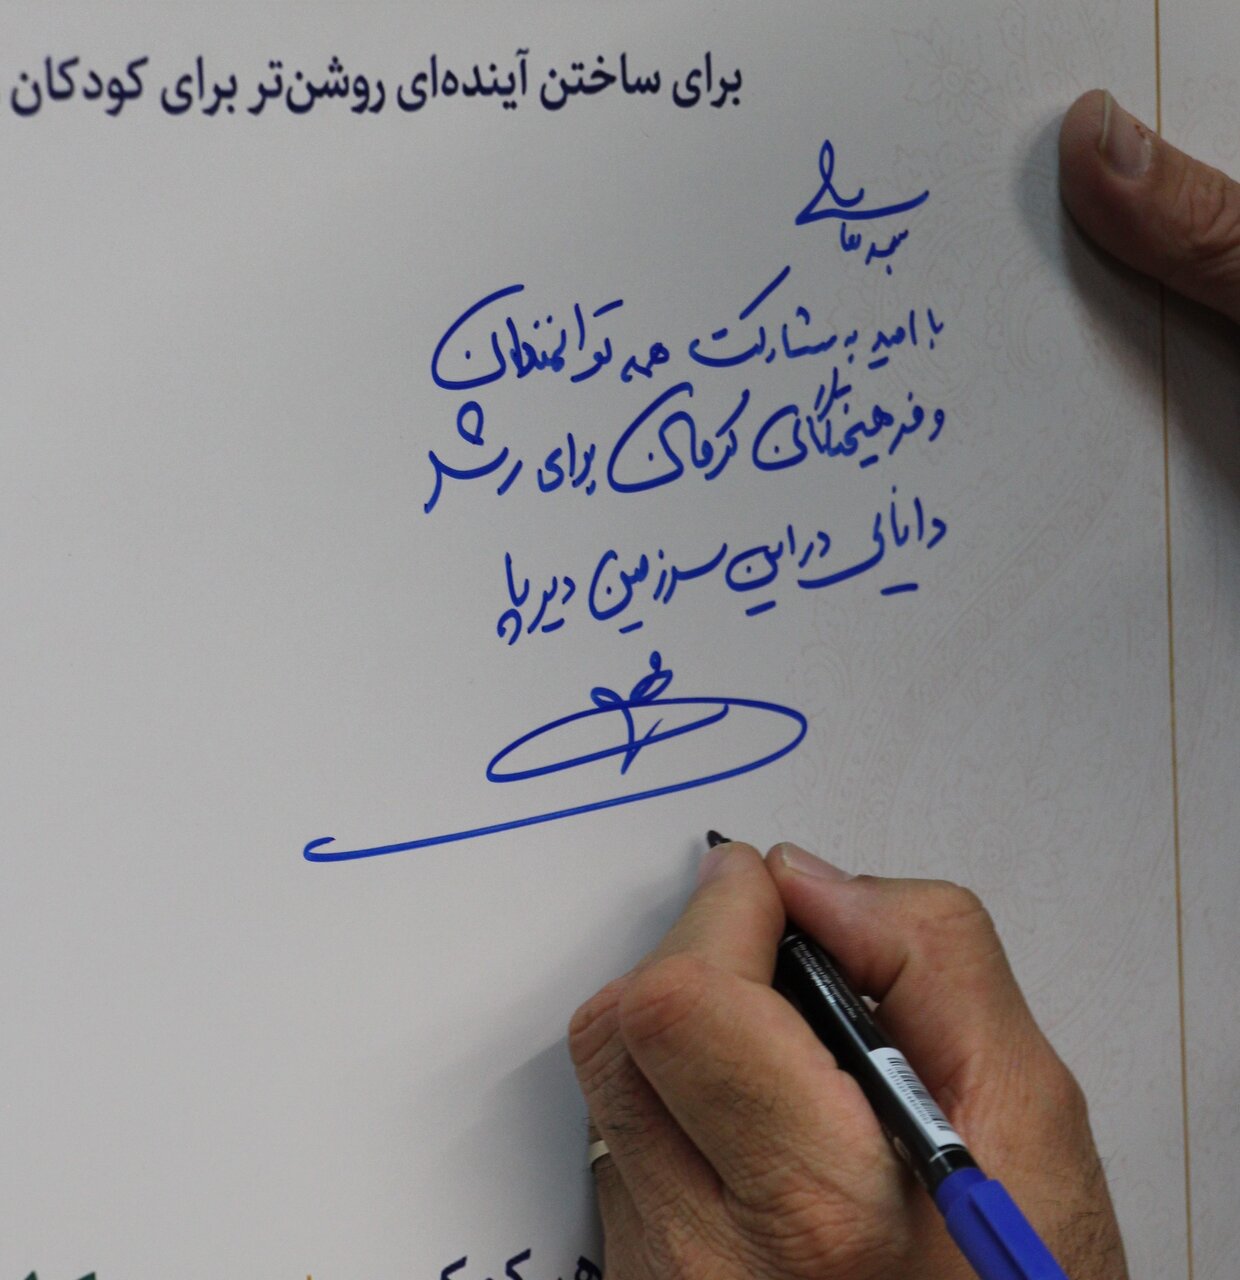 برای ساختن آینده‌ای روشن‌تر برای کودکان
با امید به مشارکت همه توانمندان
و فرهیختگان
کرمان برای رشد
دانایی در این سرزمین دیرپا